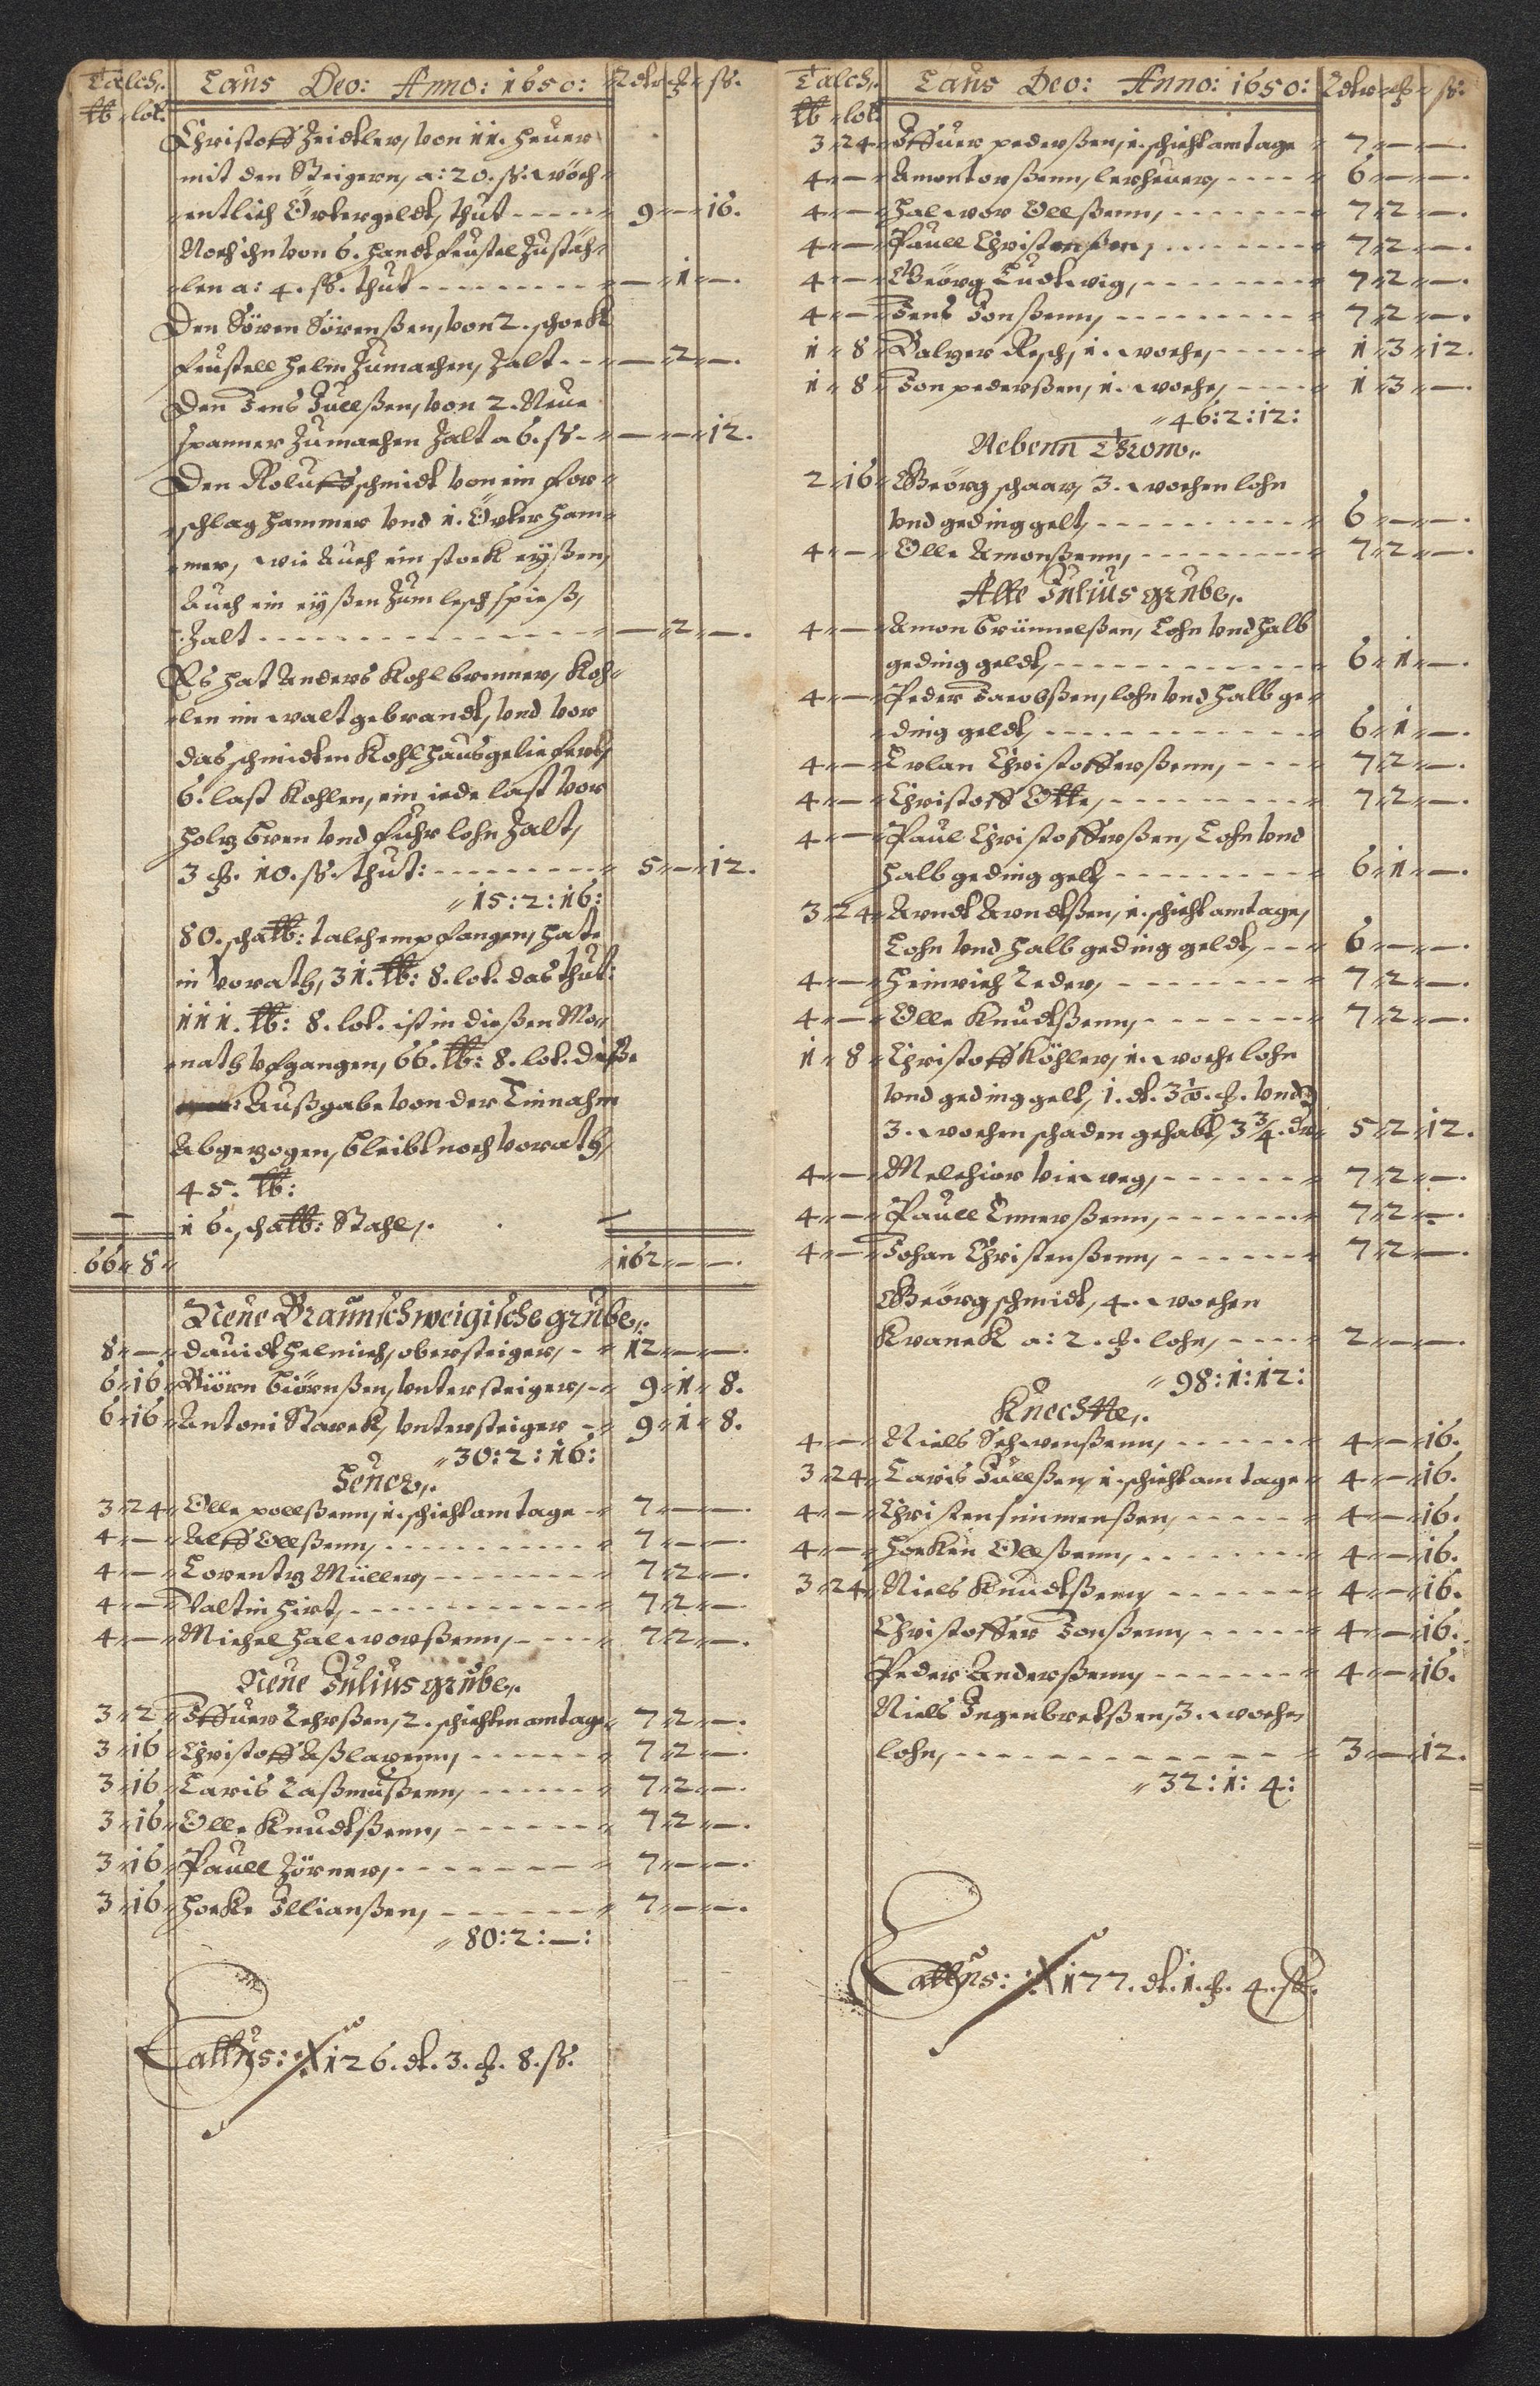 Talch,. Laus Deo: Anno: 1650: Rdtr ß.
lb lot.
Christoff Zeidtler, von 11. heuer
mit den Steigern, a: 20. ß. wöch-
entlich Örtergeldt, thut ----- 9 — 16.
Noch ihn von 6. handt feustel zustäh-
len a: 4. ß. thut --------- — 1 —.
Den Sören Sörenßen, von 2. schock
feustell helm zumachen, zalt --- — 2 —.
Den Jens Juellßen, von 2. Neue
spanner zumachen zalt a 6. ß. — — 12.
Den Roluff schmidt von ein for-
schlag hammer vnd 1. Örter ham-
mer, wie auch ein stock eyßen,
Auch ein eyßen zum lesch spieß,
zalt ------------- — 2 —.
Es hat Anders Kohlbrenner, Koh-
len im walt gebrandt, vnd vor
das schmidten Kohlhaus geliefert,
6. last Kohlen, ein iede last vor
holtz bren vnd fuhrlohn zalt,
3 10. ß. thut: --------- 5 — 12.
15:2:16:
80. scha lb: talch empfangen, hate
in vorath, 31. lb: 8. lot. das thut:
111. lb: 8. lot. ist in dießen Mo-
nath vfgangen, 66. lb: 8. lot. dieße
Außgabe von der Einnahm
Abgezogen, bleibt noch vorath,
45. lb:
16. scha lb: Stahl,.
66 8 162 — —.
Neue Braunschweigische grube,.
8 — dauidt helmich, obersteiger, - 12 — —.
6 16 Biörn Biörnßen, vntersteiger, - 9 1 8.
6 16 Antoni Starck, vntersteiger - 9 1 8.
30:2:16:
Heuer,.
3 24 Olle pollßenn, 1. schicht am tage - 7 — —.
4 — Alff Ollßenn, ---------- 7 — —.
4 — Lorentz Müller, -------- 7 2 —.
4 — Valtin hirt, ----------- 7 2 —.
4 — Michel halworßenn, ----- 7 2 —.
Neue Julius grube,.
3 2 Iffuer Lehrßen, 2. schichten am tage 7 2 —.
3 16 Christoff Aßlagenn, ------ 7 2 —.
3 16 Laris Raßmußenn, ------ 7 2 —.
3 16 Olle Knudtßenn, ------- 7 2 —.
3 16 Pauell Zörner, -------- 7 — —.
3 16 hocke Illianßen, ------- 7 — —.
80:2:—:
Lattus: 126. dt. 3. 8. ß.
Talch,. Laus Deo: Anno: 1650: Rdtr ß.
lb lot
3 24 Iffuer pederßen, 1. schicht am tage 7 — —.
4 — Amontorßenn, lerheuer, ---- 6 — —.
4 — halwor Ollßenn, ------- 7 2 —.
4 — Pauell Christenßen, ------- 7 2 —.
4 — Geörg Ludtwig, -------- 7 2 —.
4 — Jens Jonßenn, --------- 7 2 —.
1 8 Baltzer Resch, 1. woche, ----- 1 3 12.
1 8 Jon pederßen, 1. woche, ----- 1 3 —.
46:2:12:
Nebenn Throm,.
2 16 Geörg schaar, 3. wochen lohn
vnd geding gelt, ---------- 6 — —.
4 — Olle Amonßenn, --------- 7 2 —.
Alte Julius grube,.
4 — Amon brünnelßen, Lohn vnd halb
geding geldt, ------------ 6 1 —.
4 — Peder Jacobßen, lohn vnd halb ge-
ding geldt, ------------- 6 1 —.
4 — Erlan Christofferßenn, --- 7 2 —.
4 — Christoff Otte, --------- 7 2 —.
4 — Paul Christofferßen, Lohn vnd
halb geding gelt, --------- 6 1 —.
3 24 Arndt Arndtßen, 1. schicht am tage,
Lohn vnd halb geding geldt, --- 6 — —.
4 — Heinrich Leder, -------- 7 2 —.
4 — Olle Knudtßenn, ------- 7 2 —.
1 8 Christoff Köhler, 1. woche lohn
vnd geding gelt, 1. dt. 3 vnd
3. wochen schaden gehabt, 3 3/4. 5 2 12.
4 — Melchior vieweg, ------ 7 2 —.
4 — Pauell Ennerßenn, ------- 7 2 —.
4 — Johan Christenßenn, ------ 7 2 —.
Geörg schmidt, 4. wochen
Kranck a: 2. lohn, ---- 2 — —.
98:1:12:
Knechtte,.
4 — Niels Schwenßenn, ------ 4 — 16.
3 24 Laris Juellßen, 1. schicht am tage 4 — 16.
4 — Christen simmenßen, ----- 4 — 16.
4 — hocken Ollßenn, ------- 4 — 16.
3 24 Niels Knudtßenn, ------ 4 — 16.
Christoffer Jonßenn, ----- 4 — 16.
Peder Anderßenn, ------- 4 — 16.
Niels Ingenbretßen, 3. wochen
lohn, ------------- 3 — 12.
32:1:4:
Lattus: 177. dt. 1. 4. ß.